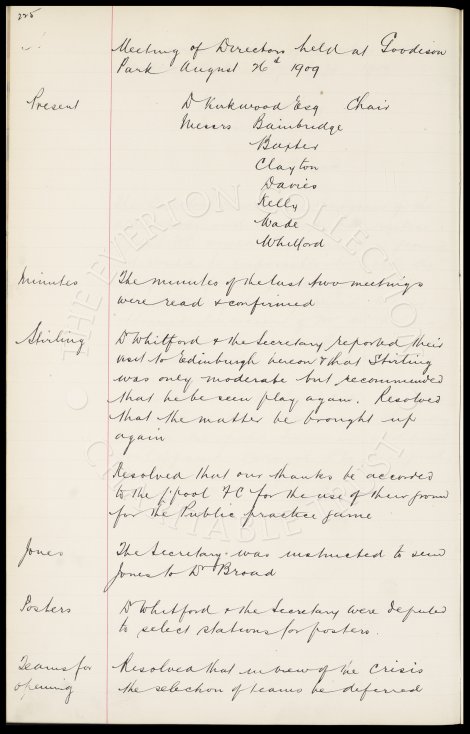 225
Meeting of Directors held at Goodison
Park August 26th 1909
Present D Kirkwood Esq Chair
Messrs Bainbridge
Baxter
Clayton
Davies
Kelly
Wade
Whitford
Minutes The minutes of the last two meetings
were read & confirmed
Stirling D Whitford & the Secretary reported their
visit to Edinburgh hereon & that Stirling
was only moderate but recommended
that he be seen play again. Resolved
that the matter be brought up
again
Resolved that our thanks be accorded
to the L'pool FC for the use of their ground
for the Public practice game
Jones The Secretary was instructed to send
Jones to Dr Broad
Posters D Whitford & the Secretary were deputed
to select stations for posters.
Teams for Resolved that in view of the Crisis
opening the selection of teams be deferred
THE EVERTON COLLECTION
CHARITABLE TRUST